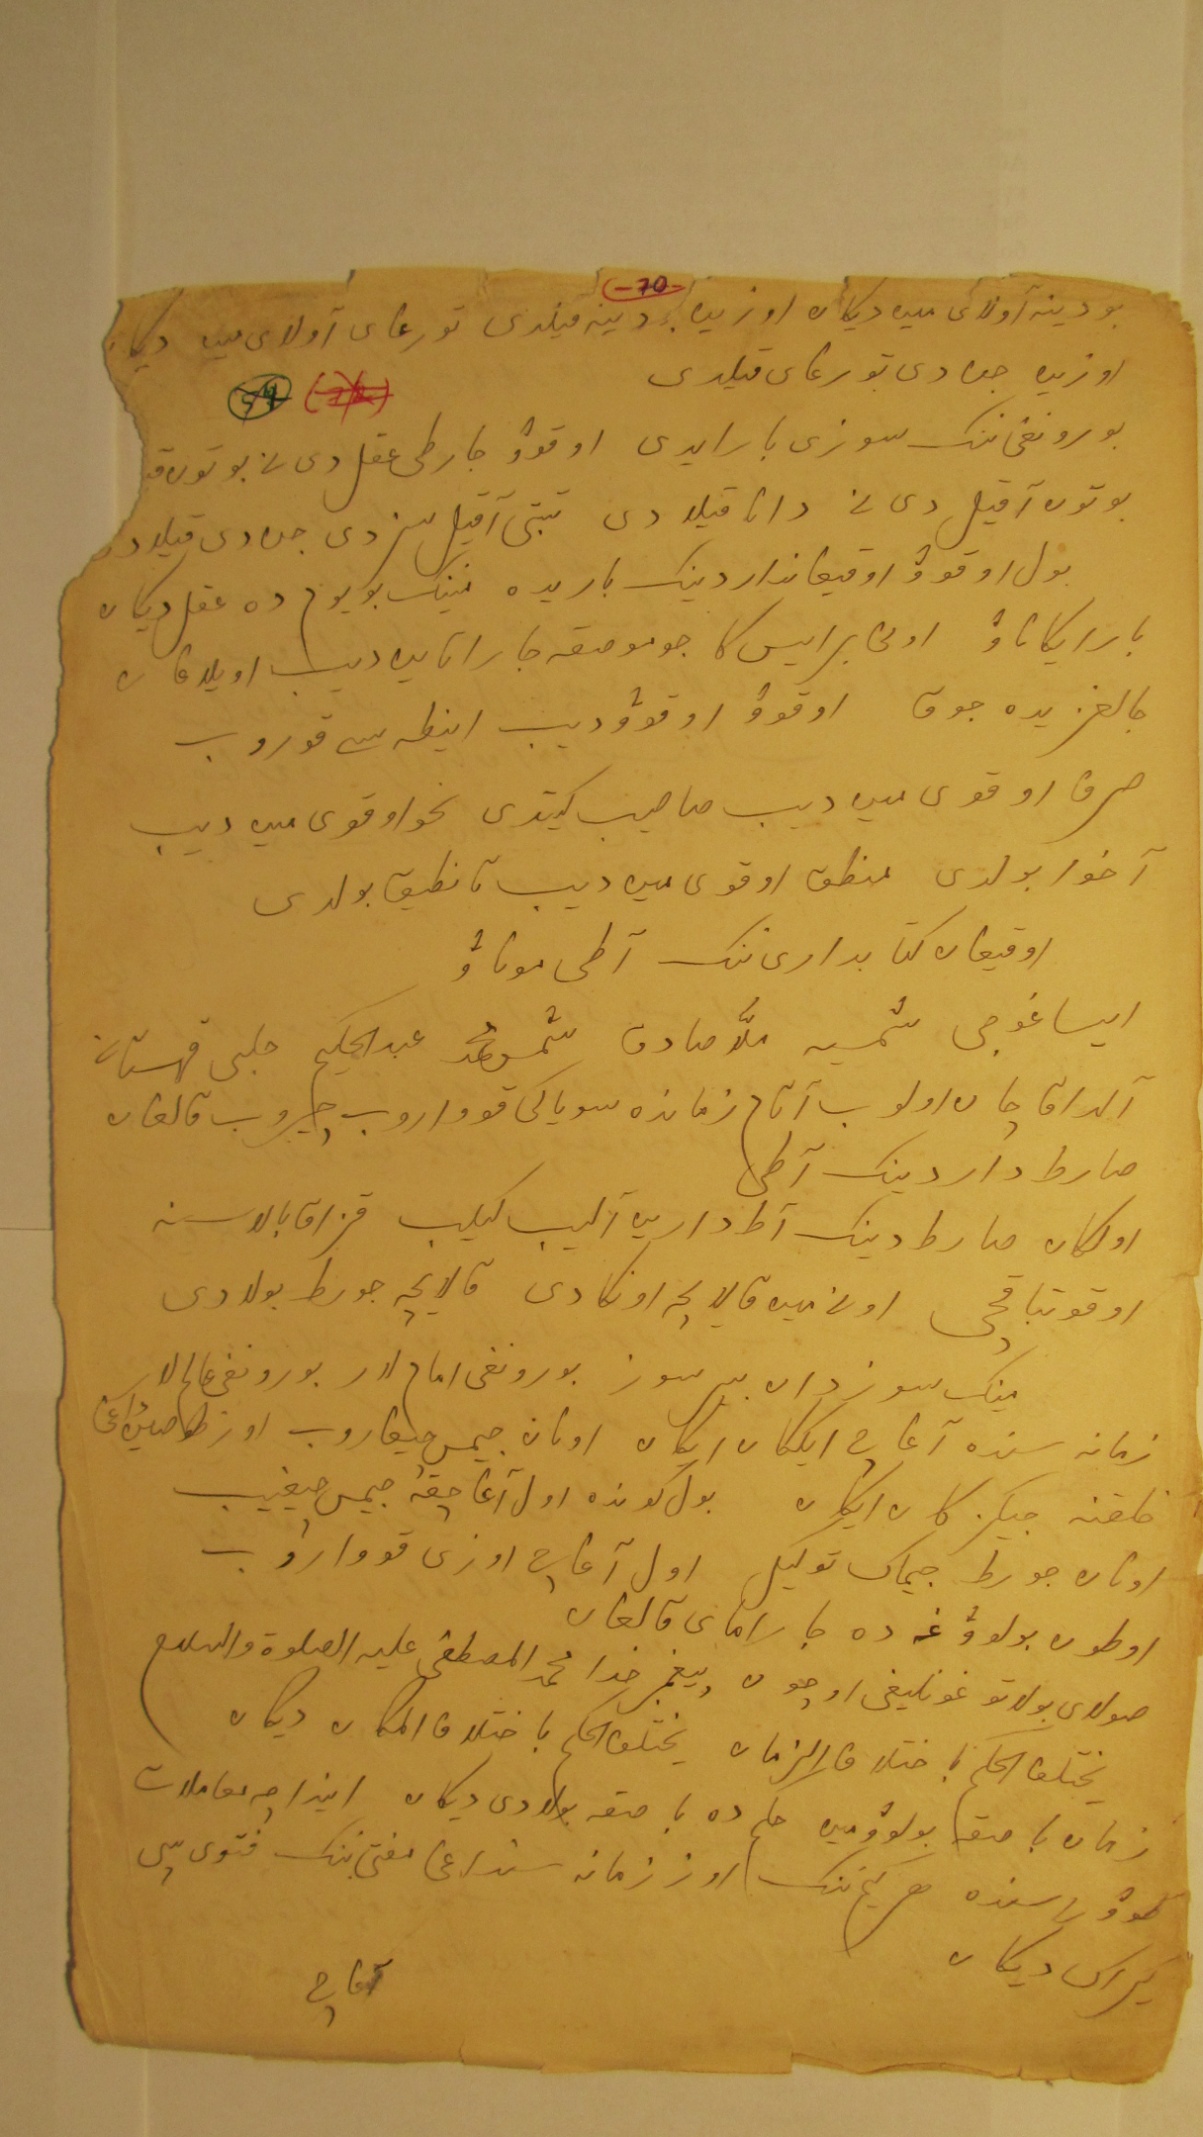 -70-
بودینه آولای من دیکان اوزین بودینه قیلدی تورغای آولای من دیکان
اوزین جن دی تورغای قیلدی
بورونغی ننک سوزی بار ایدی اوقوۋ جارطی عقل دی نی بوتون
بوتون آقیل دی نی دانا قیلادی تیتی آقیل سز دی جن دی قیلاد
بول اوقوۋ اوقیغانداردینک باریده نینک بویوم ده عقل دیکان
بار ایکاناۋ اونی بر ایس کا جومومصقه جاراتاین دیب اویلاغان
جالغز یده جوق اوقوۋ اوقوۋ دیب اینطه سی قوروب
صرف اوقوی من دیب صاصیب کیتدی نحو اوقوی من دیب
آخوا بولدی منطق اوقوی من دیب تانطیق بولدی
اوقیغان کتابداری ننک آطی موناۋ
ایساغوجی شمسیه ملّا صادق شمس محمد عبدالحکیم چلبی قهستانی
آلداقاچان اولوب آتام زمانده سویاکی قوواروب چیروب قالغان
صارط داردینک آطی
اولکان صارط دینک آطدارین آلیب کیلیب قزاق بالاسنه
اوقوتباقچی اونی من قالایچه اونکادی قالایچه جورط بولادی
مینک سوزدان بیر سوز بورونغی امام لار بورونغی عالملار
زمانه سنده آغاچ ایککان ایکان اونان جیمس چیغاروب اوز طوصینداغی
خلقنه جیکزکان ایکان بول کونده اول آغاچقه جیمس چیغیب
اونان جورط جیماک توکیل اول آغاچ اوزی قوواروب
اوطون بولوۋغه ده جارامای قالغان
صولای بولاتوغونلیغی اوچون پیغمبر خدا محمد المصطفی علیه الصلوة والسلام
یختلف الحکم باختلاف الزمان یختلف الحکم باختلاف المکان دیکان
زمان باصقه بولوۋ من حکم ده باصقه بولادی دیکان اینداچه معاملات
طوۋراسنده هر کیم ننک اوز زمانه سنداغی مفتی ننک فتوی سی
کیراک دیکان
آغاچ